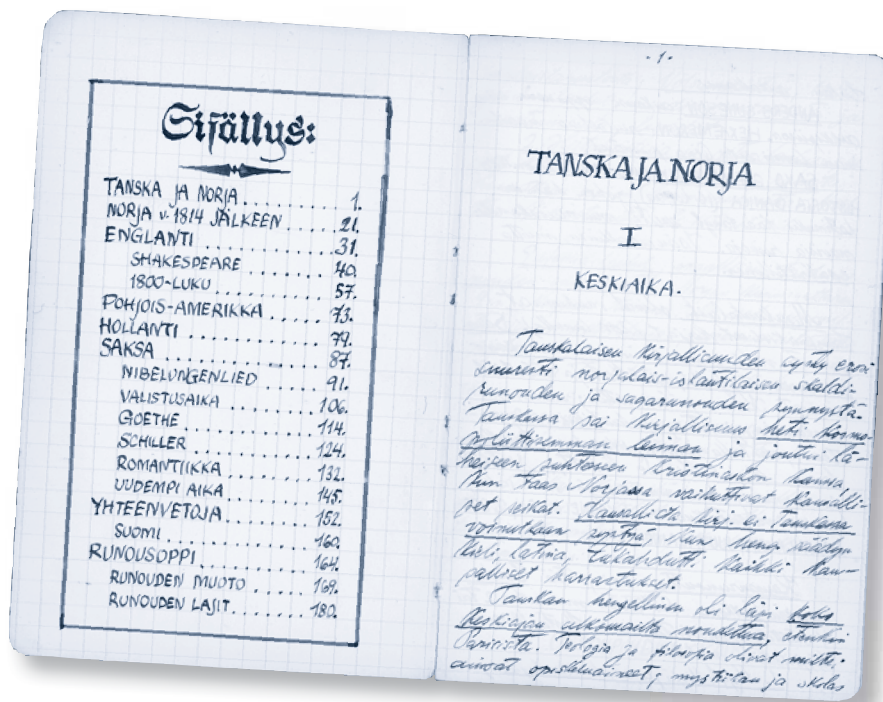 Sisällys:
TANSKA JA NORJA ........ 1.
NORJA v. 1814 JÄLKEEN ..... 21.
ENGLANTI ............ 31.
SHAKESPEARE ........ 40.
1800-LUKU ........ 57.
POHJOIS-AMERIKKA ..... 73.
HOLLANTI ............ 79.
SAKSA ............ 87.
NIBELUNGENLIED ...... 91.
VALISTUSAIKA ....... 106.
GOETHE ........ 114.
SCHILLER ........ 124.
ROMANTIIKKA ...... 132.
UUDEMPI AIKA ...... 145.
YHTEENVETOJA ........ 152.
SUOMI ........ 160.
RUNOUSOPPI ........ 164.
RUNOUDEN MUOTO .... 169.
RUNOUDEN LAJIT .... 180.
- 1 -
TANSKA JA NORJA
I
KESKIAIKA.
Tanskalaisen kirjallisuuden synty erosi
suuresti norjalais-islantilaisen skaldi-
runouden ja sagarunouden synnystä.
Tanskassa sai kirjallisuus heti kosmo-
poliittisemman leiman ja joutui lä-
heiseen suhteeseen kristinuskon kanssa,
kun taas Norjassa vaikuttivat kansalli-
set seikat. Kansallista kirj. ei Tanskassa
voinutkaan syntyä, kun hengi säädyn
kieli, latina, tukahdutti kaikki kan-
salliset harrastukset.
Tanskan hengellinen oli läpi koko
keskiajan ulkomailta noudettua, etenkin
Pariisista. Teologia ja filosofia olivat miltei
ainoat opiskeluaineet; mystiikan ja skolas